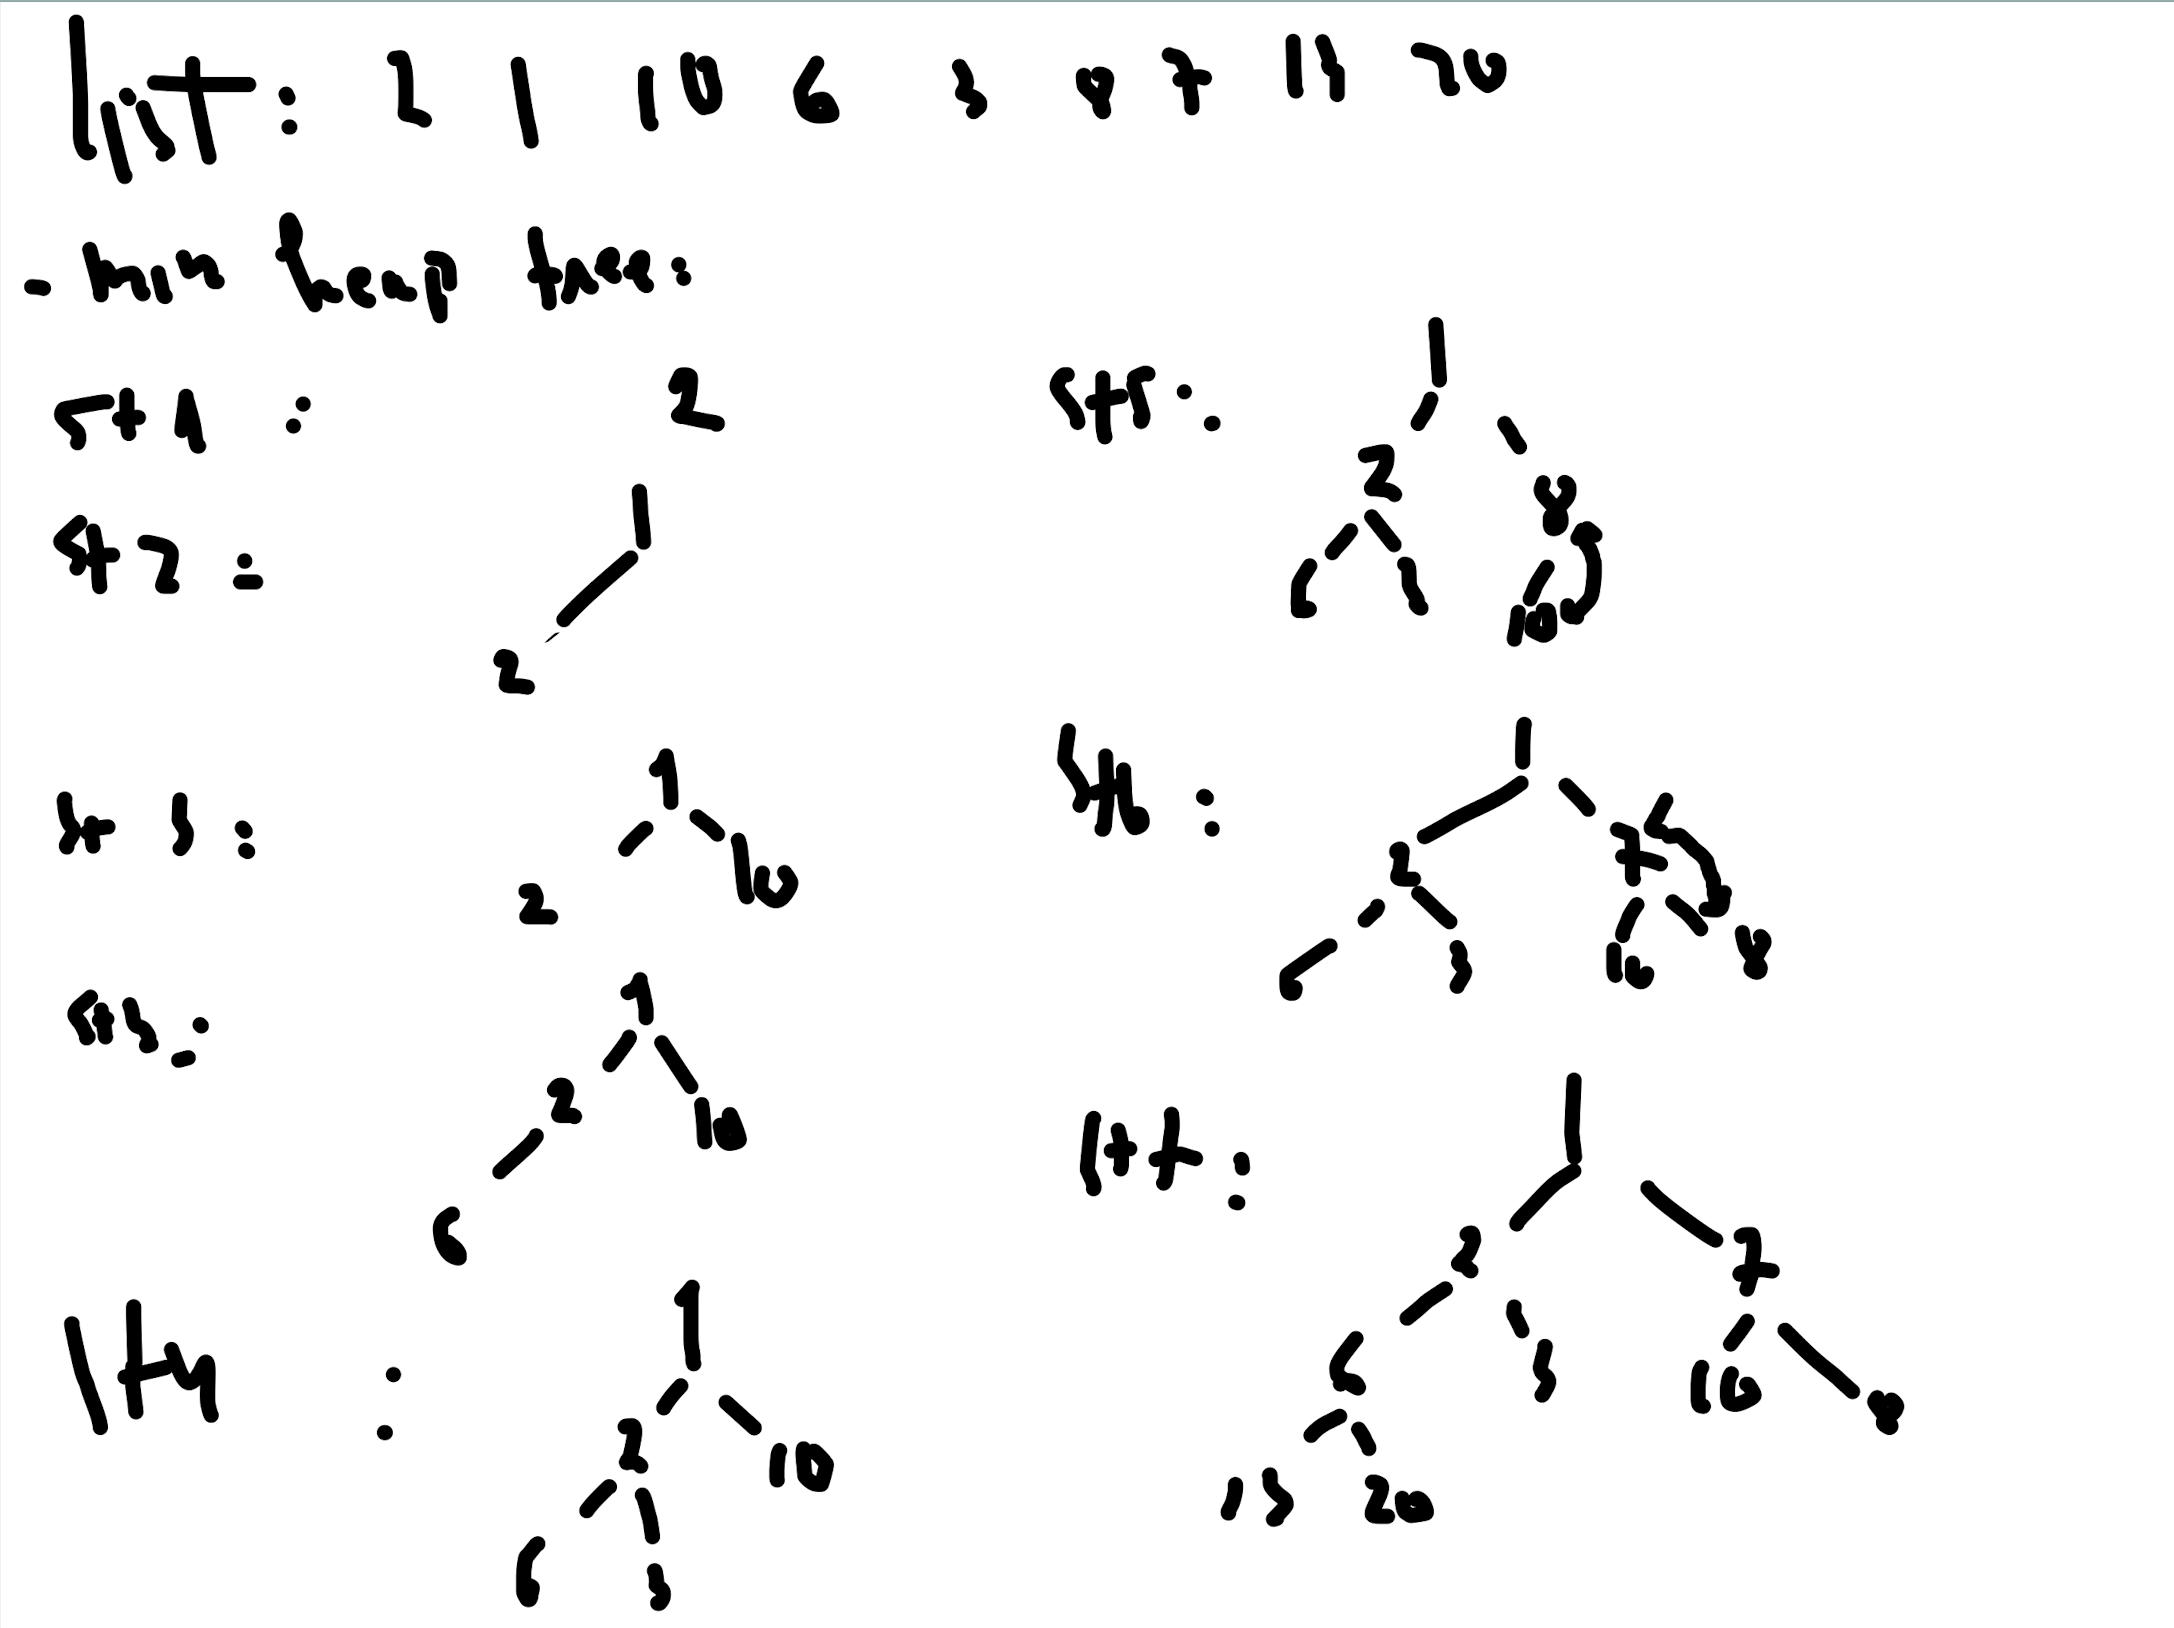 List: 2 1 10 6 3 8 7 15 20
- min heap tree:
St 1: 2
St 2:
1
2
St 3:
1
2 10
St 4:
1
2 10
6
1
2 10
6 3
St 5:
1
2 8
6 3 10
St 6:
1
2 7
6 3 10 8
St 7:
1
2 7
6 3 10 8
15 20